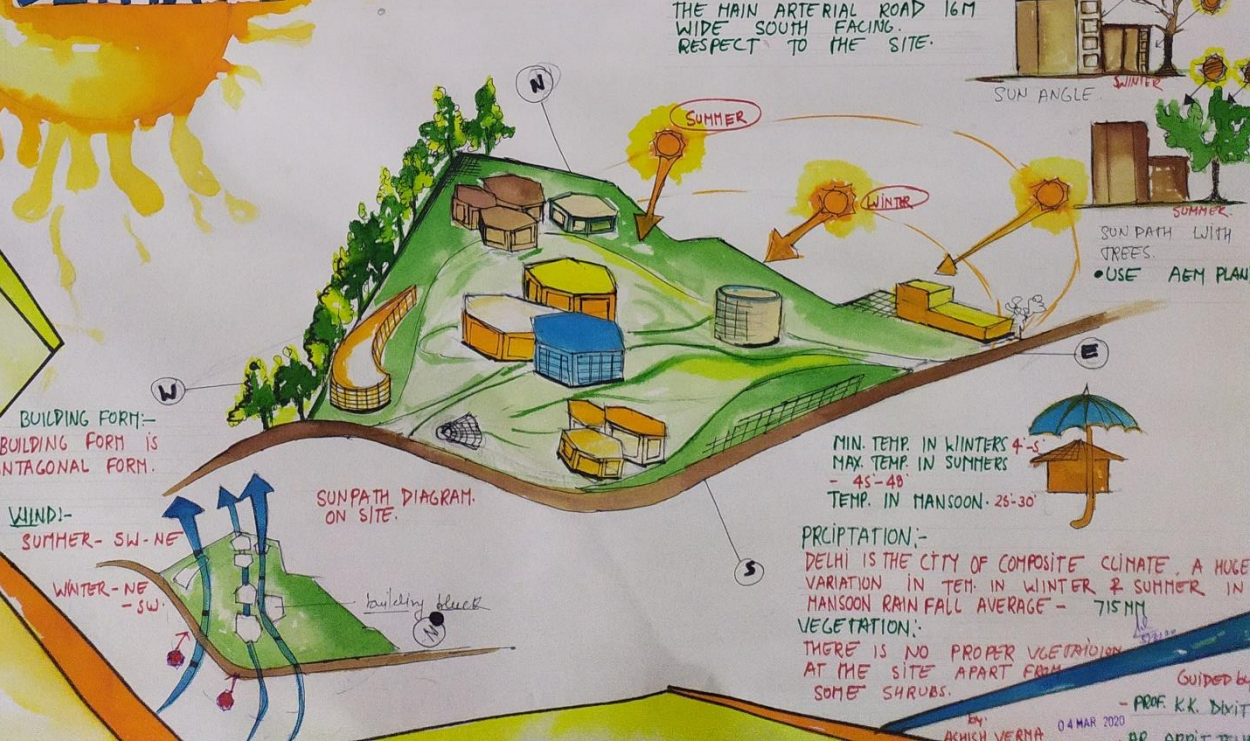 THE MAIN ARTERIAL ROAD 16M
WIDE SOUTH FACING.
RESPECT TO THE SITE.
WINTER
SUN ANGLE
SUMMER.
SUN PATH WITH
TREES.
•USE AEM PLAN
N
SUMMER
WINTER
W
E
S
BUILDING FORM:-
BUILDING FORM IS
NTAGONAL FORM.
WIND:-
SUMMER- SW-NE
WINTER-NE
-SW.
SUNPATH DIAGRAM.
ON SITE.
building block
N
MIN. TEMP. IN WINTERS 4°-5°
MAX. TEMP. IN SUMMERS
- 45°-48°
TEMP. IN MANSOON. 25°-30°
PRCIPTATION:-
DELHI IS THE CITY OF COMPOSITE CLIMATE. A HUGE
VARIATION IN TEM. IN WINTER & SUMMER IN
MANSOON RAIN FALL AVERAGE - 715MM
VEGETATION:-
THERE IS NO PROPER VGETAIDION
AT THE SITE APART FROM
SOME SHRUBS.
GUIDED by
- PROF. K.K. DIXIT
by:
ACHICH VERMA
04 MAR 2020